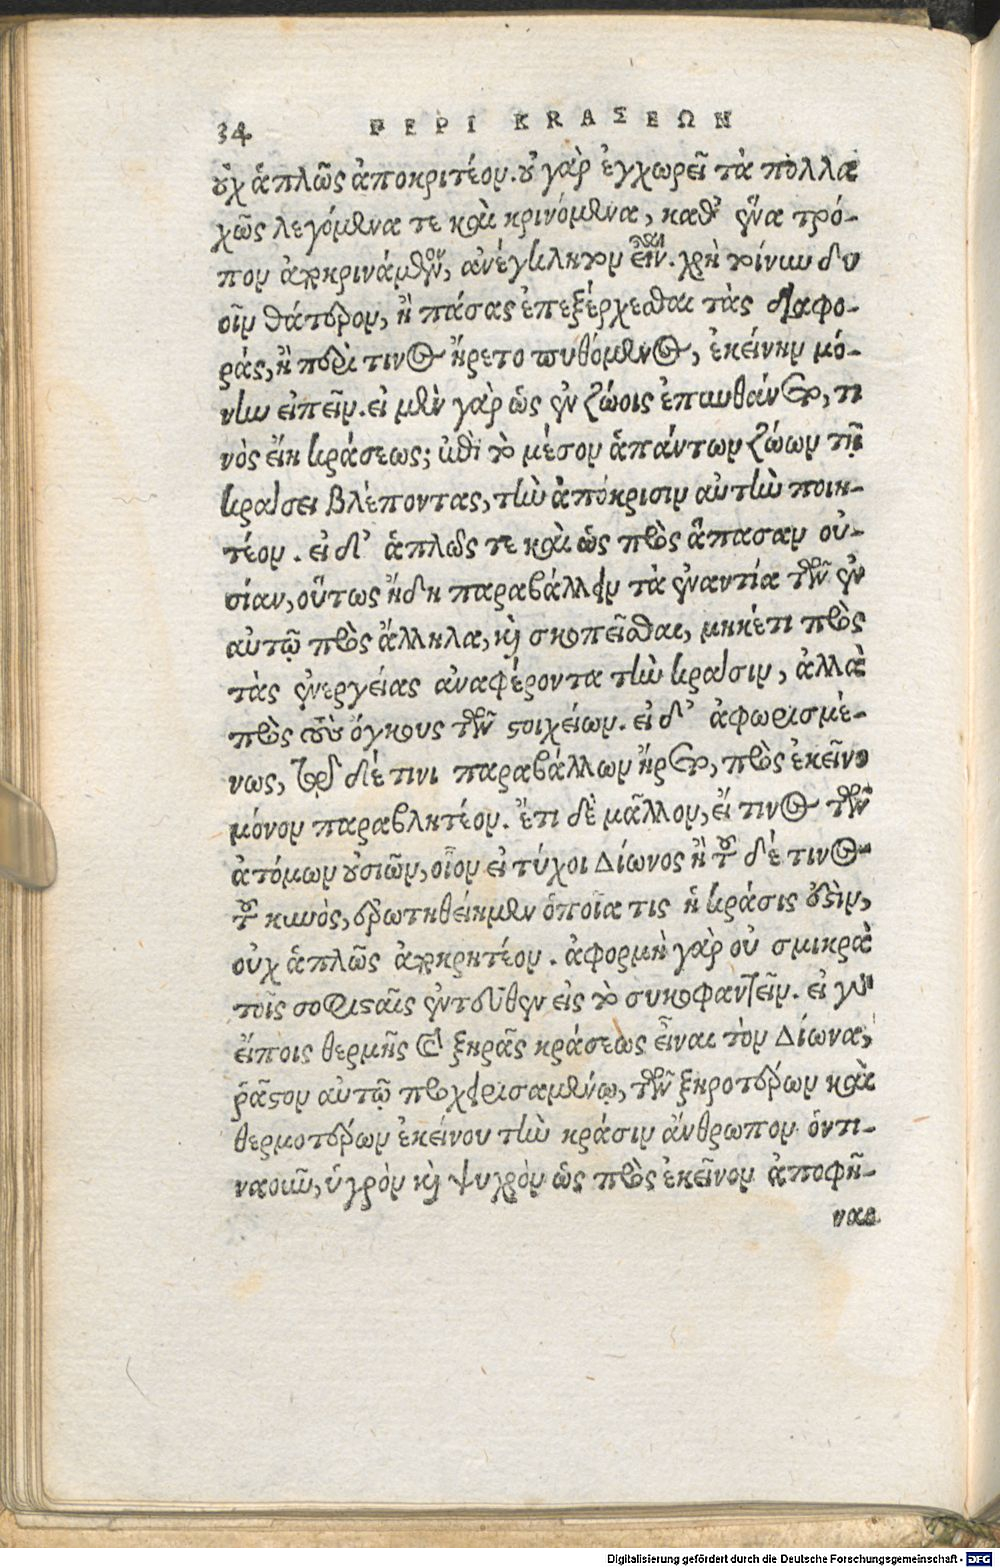 34 ΡΕΡΙ ΚRΑΣΕΩΝ
οὐχ ἁπλῶς ἀποκριτέον. οὐ γὰρ ἐγχωρεῖ τὰ πολλα
χῶς λεγόμενα τε καὶ κρινόμενα, καθ᾽ ἕνα τρό-
πον ἀποκρινάμενον, ἀνέγκλητον εἶναι. χρὴ τοίνυν δυ
οῖν θάτερον, ἢ πάσας ἐπεξέρχεσθαι τὰς διαφο-
ράς, ἢ περὶ τινος ἤρετο πυθόμενος, ἐκείνην μό-
νην εἰπεῖν. εἰ μὲν γὰρ ὡς ἐν ζώοις ἐπυνθάνετο, τι
νὸς εἴη κράσεως; ἐπὶ τὸ μέσον ἁπάντων ζώων τῇ
κράσει βλέποντας, τὴν ἀπόκρισιν αὐτὴν ποιη-
τέον. εἰ δ᾽ ἁπλῶς τε καὶ ὡς πρὸς ἅπασαν οὐ-
σίαν, οὕτως ἤδη παραβάλλειν τὰ ἐναντία τῶν ἐν
αὐτῷ πρὸς ἄλληλα, καὶ σκοπεῖσθαι, μηκέτι πρὸς
τὰς ἐνεργείας ἀναφέροντα τὴν κράσιν, ἀλλὰ
πρὸς τοὺς ὄγκους τῶν στοιχείων. εἰ δ᾽ ἀφωρισμέ-
νως, τῷδέ τινι παραβάλλων ἤρετο, πρὸς ἐκεῖνο
μόνον παραβλητέον. ἔτι δὲ μᾶλλον, εἴ τινος τῶν
ἀτόμων οὐσιῶν, οἷον εἰ τύχοι Δίωνος ἢ τοῦ δέ τινος
τοῦ κυνὸς, ἐρωτηθείημεν ὁποῖα τις ἡ κράσις ἐστὶν,
οὐχ ἁπλῶς ἀποκρητέον. ἀφορμὴ γὰρ οὐ σμικρὰ
τοῖς σοφισταῖς ἐντεῦθεν εἰς τὸ συκοφαντεῖν. εἰ γὰρ
εἴποις θερμῆς καὶ ξηρᾶς κράσεως εἶναι τὸν Δίωνα,
ῥᾷστον αὐτῷ προχειρισαμένῳ, τῶν ξηροτέρων καὶ
θερμοτέρων ἐκείνου τὴν κράσιν ἄνθρωπον ὁντι-
ναοῦν, ὑγρὸν καὶ ψυχρὸν ὡς πρὸς ἐκεῖνον ἀποφῆ-
ναι
Digitalisierung gefördert durch die Deutsche Forschungsgemeinschaft - DFG